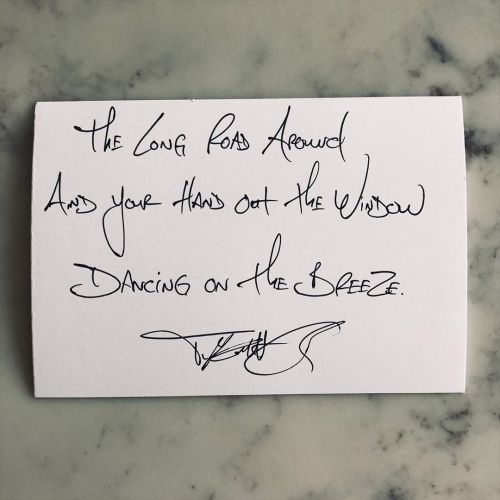 The Long Road Around
And your Hand out the Window
Dancing on the Breeze.